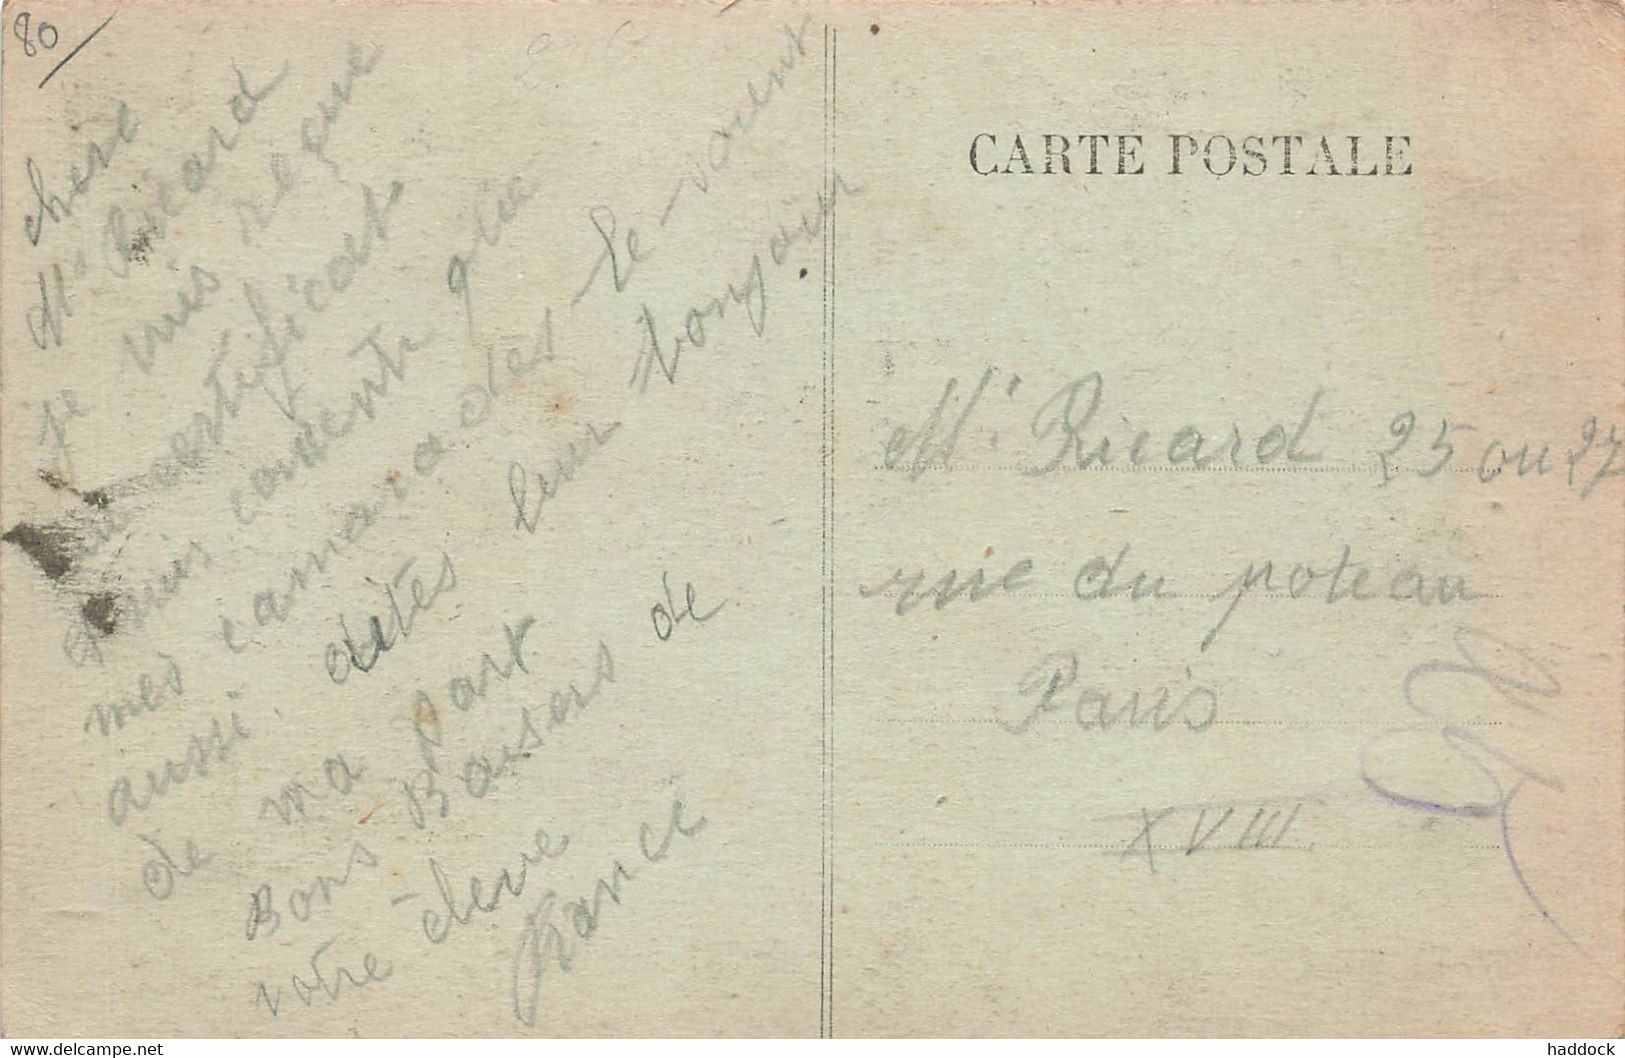 80
chère
Me Ricard
je suis reçue
au certificat
suis contente que
mes camarades le soient
aussi. dites leur bonjour
de ma part
Bons Baisers de
votre élève
France
CARTE POSTALE
Me Ricard 25 ou 27
rue du poteau
Paris
XVIII.
www.delcampe.net
haddock